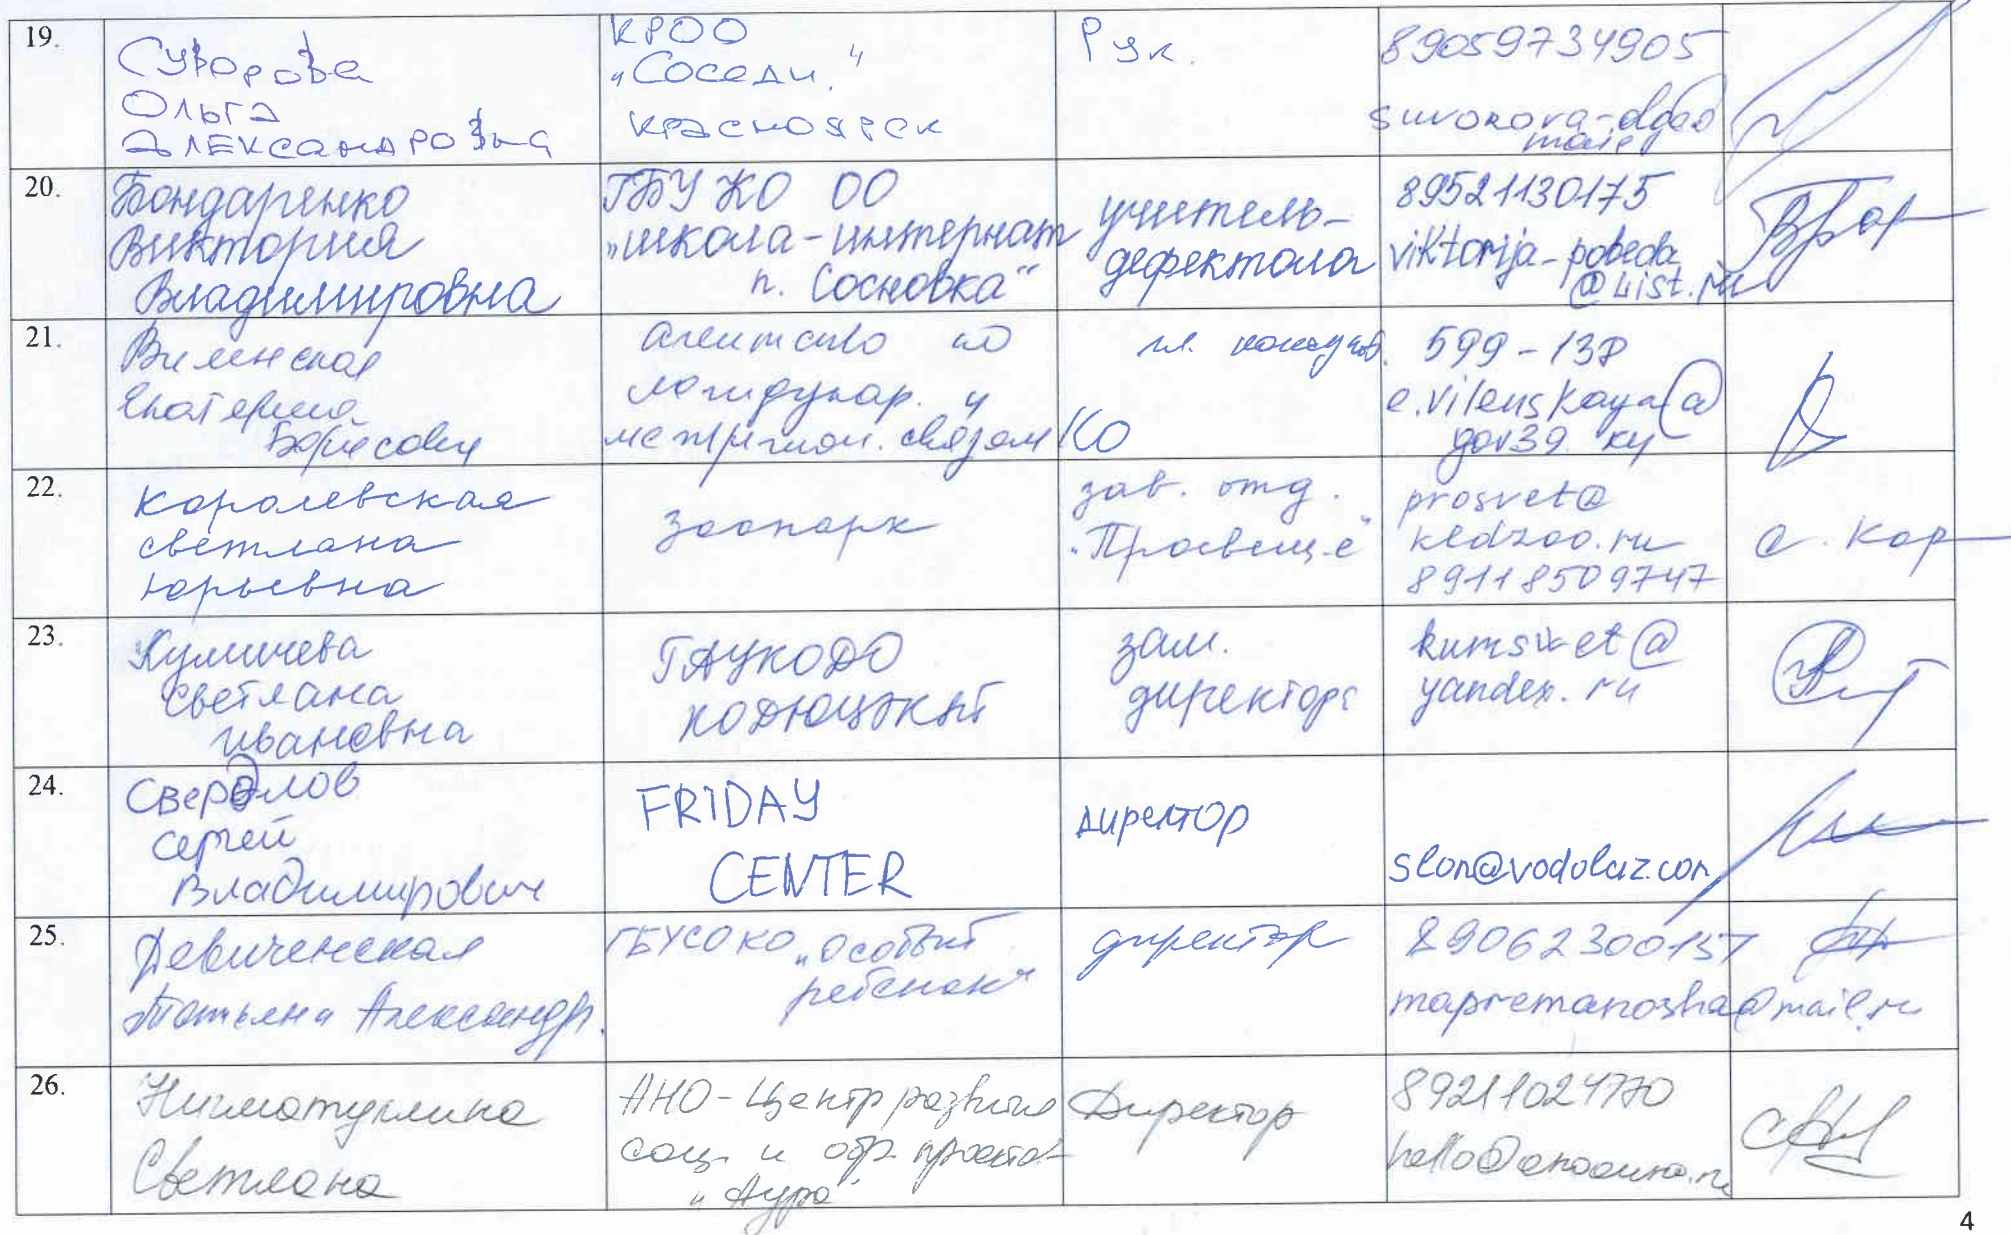 19.
Суворова
Ольга
Александровна
КРОО
„Соседи"
Красноярск
Рук.
89059734905
suvorova-olga@
mail
20.
Бондаренко
Виктория
Владимировна
ГБУ КО ОО
„школа-интернат
п. Сосновка"
учитель-
дефектолог
89521130175
viktorija-pobeda
@list.ru
21.
Виленская
Екатерина
Борисовна
Агентство по
междунар. и
межрегион. связям КО
гл. консульт.
599-138
e.vilenskaya@
gov39.ru
22.
Королевская
Светлана
Юрьевна
Зоопарк
зав. отд.
"Просвещ-е"
prosvet@
kldzoo.ru
89118509747
С. Кор
23.
Кумичева
Светлана
Ивановна
ГАУКОДО
КОДЮЦЭКиТ
зам.
директора
kumsvet@
yandex.ru
24.
Свердлов
Сергей
Владимирович
FRIDAY
CENTER
директор
slon@vodolaz.com
25.
Девиченская
Татьяна Александр.
ГБУСОКО „Особый
ребенок"
директор
89062300157
mapremanosha@mail.ru
26.
Нигматуллина
Светлана
АНО-Центр развития
соц. и обр. проектов
"Аура"
Директор
89211024770
4